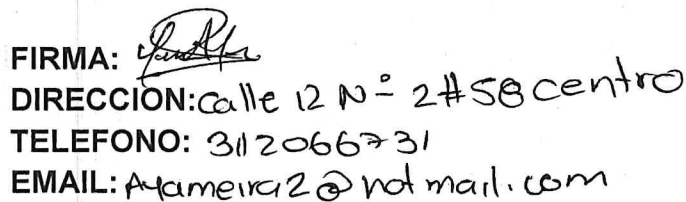 FIRMA:
DIRECCIÓN: calle 12 Nº 2#58 centro
TELEFONO: 3112066731
EMAIL: Ayameira2@hotmail.com